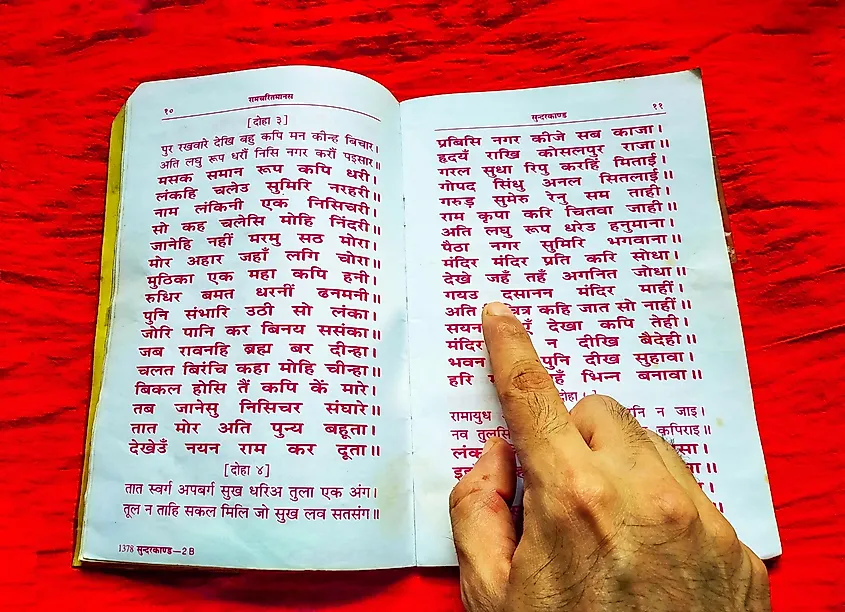 १०
रामचरितमानस
[दोहा ३]
पुर रखवारे देखि बहु कपि मन कीन्ह बिचार।
अति लघु रूप धरौं निसि नगर करौं पइसार॥
मसक समान रूप कपि धरी।
लंकहि चलेउ सुमिरि नरहरी॥
नाम लंकिनी एक निसिचरी।
सो कह चलेसि मोहि निंदरी॥
जानेहि नहीं मरमु सठ मोरा।
मोर अहार जहाँ लगि चोरा॥
मुठिका एक महा कपि हनी।
रुधिर बमत धरनीं ढनमनी॥
पुनि संभारि उठी सो लंका।
जोरि पानि कर बिनय ससंका॥
जब रावनहि ब्रह्म बर दीन्हा।
चलत बिरंचि कहा मोहि चीन्हा॥
बिकल होसि तैं कपि कें मारे।
तब जानेसु निसिचर संघारे॥
तात मोर अति पुन्य बहूता।
देखेउँ नयन राम कर दूता॥
[दोहा ४]
तात स्वर्ग अपबर्ग सुख धरिअ तुला एक अंग।
तूल न ताहि सकल मिलि जो सुख लव सतसंग॥
1378 सुन्दरकाण्ड—2 B
सुन्दरकाण्ड
११
प्रबिसि नगर कीजे सब काजा।
हृदयँ राखि कोसलपुर राजा॥
गरल सुधा रिपु करहिं मिताई।
गोपद सिंधु अनल सितलाई॥
गरुड़ सुमेरु रेनु सम ताही।
राम कृपा करि चितवा जाही॥
अति लघु रूप धरेउ हनुमाना।
पैठा नगर सुमिरि भगवाना॥
मंदिर मंदिर प्रति करि सोधा।
देखे जहँ तहँ अगनित जोधा॥
गयउ दसानन मंदिर माहीं।
अति कहि जात सो नाहीं॥
सयन देखा कपि तेही।
मंदिर न दीखि बैदेही॥
भवन पुनि दीख सुहावा।
हरि भिन्न बनावा॥
रामायुध न जाइ।
नव कपिराइ॥